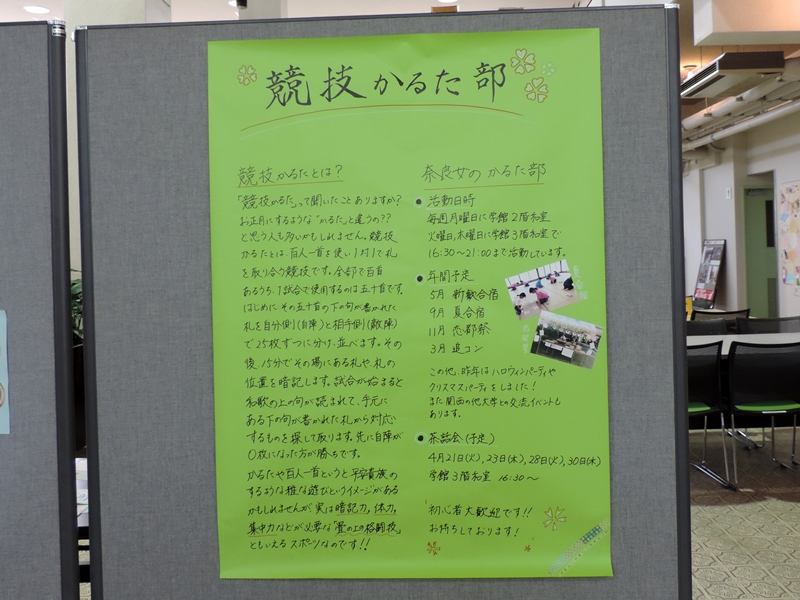 競技かるた部
競技かるたとは？
「競技かるた」って聞いたことありますか？
お正月にするような"かるた"と違うの??
と思う人も多いかもしれません。競技
かるたとは、百人一首を使い1対1で札
を取り合う競技です。全部で百首
あるうち、1試合で使用するのは五十首です。
はじめに、その五十首の下の句が書かれた
札を自分側(自陣)と相手側(敵陣)
で25枚ずつに分け、並べます。その
後、15分でその場にある札や、札の
位置を暗記します。試合が始まると
和歌の上の句が読まれて、手元に
ある下の句が書かれた札から対応
するものを探して取ります。先に自陣が
0枚になった方が勝ちです。
かるたや百人一首というと平安貴族の
するような雅な遊びというイメージがある
かもしれませんが、実は暗記力、体力、
集中力などが必要な「畳の上の格闘技」
ともいえるスポーツなのです!!
奈良女のかるた部
●活動日時
毎週月曜日に学館2階和室
火曜日,木曜日に学館3階和室で
16:30～21:00まで活動しています。
●年間予定
5月 新歓合宿
9月 夏合宿
11月 恋都祭
3月 追コン
この他、昨年はハロウィンパーティや
クリスマスパーティをしました!
また関西の他大学との交流イベントも
あります。
●茶話会(予定)
4月21日(火),23日(木),28日(火),30日(木)
学館3階和室 16:30～
初心者大歓迎です!!
お待ちしております!